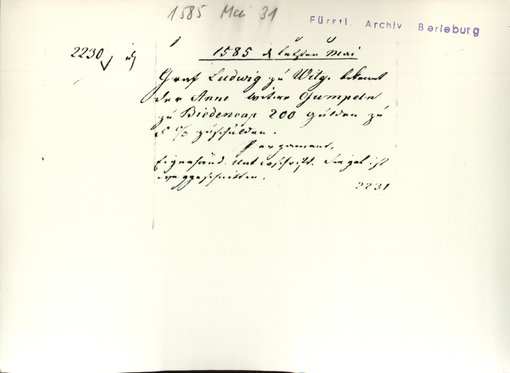 1585 Mai 31
Fürstl. Archiv Berleburg
2230
1585 d letzten Mai
Graf Ludwig zu Witg. bekennt
der Anne witwe Gumpeln
zu Biedencap 200 Gulden zu
5 % zuschulden.
Pergament.
Eigenhänd. Unterschrift. Siegel ist
weggeschnitten.
2231